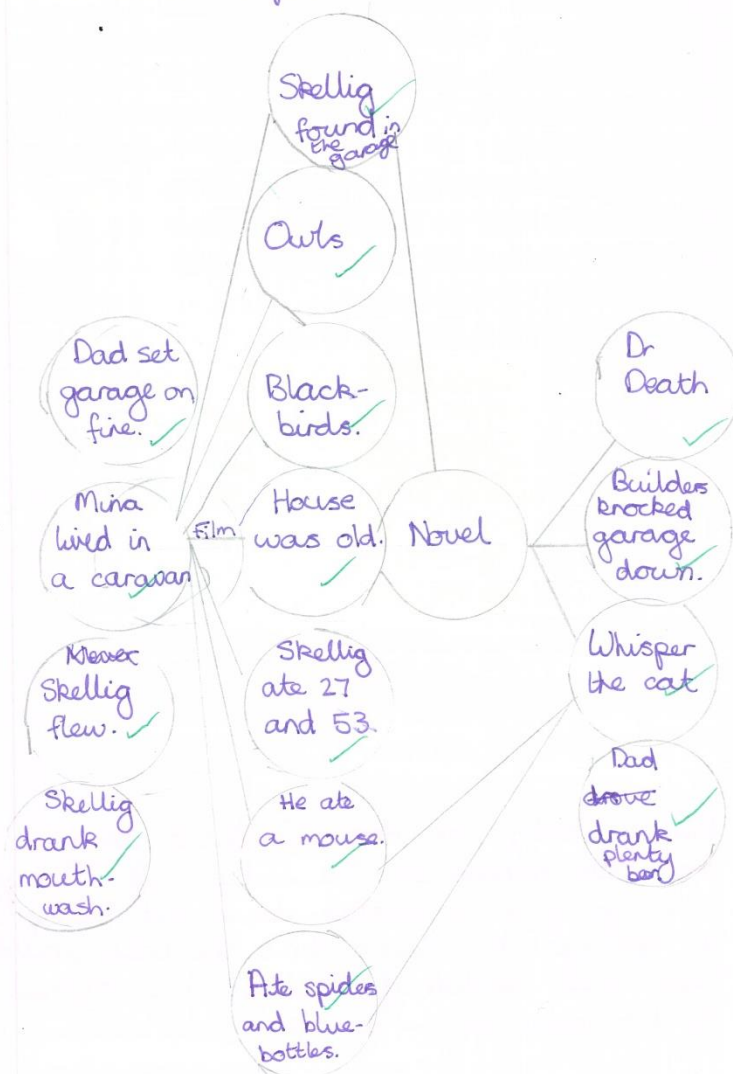 Skellig
found in
the
garage
Owls
Dad set
garage on
fire.
Black-
birds.
Dr
Death
Mina
lived in
a caravan
Film
House
was old.
Novel
Builders
knocked
garage
down.
Skellig
flew.
Skellig
ate 27
and 53.
Whisper
the cat
Skellig
drank
mouth-
wash.
He ate
a mouse.
Dad
drove
drank
plenty
Ate spides
and blue-
bottles.